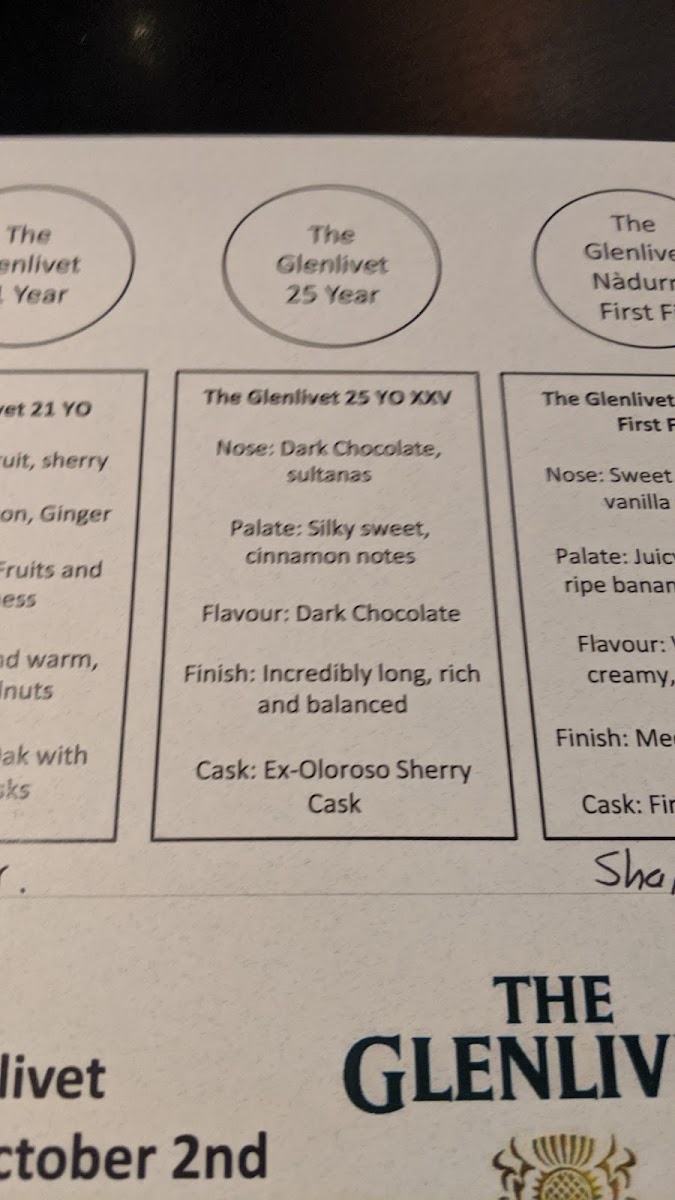 The
enlivet
1 Year
The
Glenlivet
25 Year
The
Glenlive
Nàdurr
First Fi
vet 21 YO
uit, sherry
on, Ginger
Fruits and
ess
nd warm,
lnuts
oak with
sks
The Glenlivet 25 YO XXV
Nose: Dark Chocolate,
sultanas
Palate: Silky sweet,
cinnamon notes
Flavour: Dark Chocolate
Finish: Incredibly long, rich
and balanced
Cask: Ex-Oloroso Sherry
Cask
The Glenlivet
First F
Nose: Sweet
vanilla
Palate: Juicy
ripe banan
Flavour: V
creamy,
Finish: Me
Cask: Fir
r.
Sha
livet
ctober 2nd
THE
GLENLIV